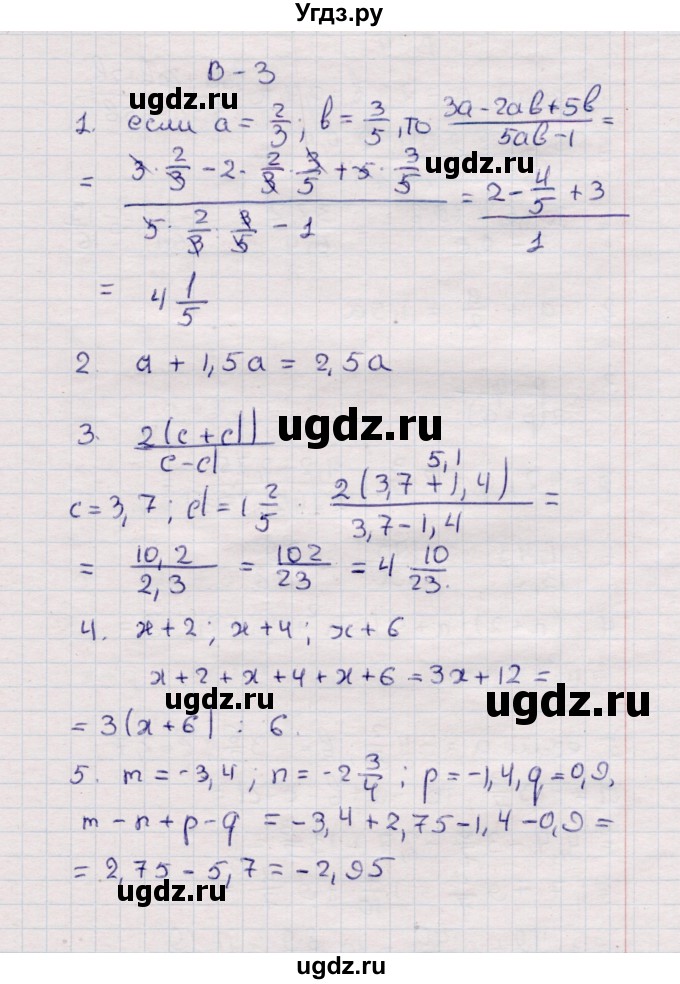 Угдз.ру
В - 3
1. если a = 2/3 ; b = 3/5, то (3a - 2ab + 5b)/(5ab - 1) =
= (3 · 2/3 - 2 · 2/3 · 3/5 + 5 · 3/5)/(5 · 2/3 · 3/5 - 1) = (2 - 4/5 + 3)/1
= 4 1/5
2. a + 1,5a = 2,5a
3. 2(c + d)/(c - d)
5,1
c = 3,7 ; d = 1 2/5 · 2(3,7 + 1,4)/(3,7 - 1,4) =
= 10,2/2,3 = 102/23 = 4 10/23.
4. x + 2 ; x + 4 ; x + 6
x + 2 + x + 4 + x + 6 = 3x + 12 =
= 3(x + 6) ⋮ 6.
5. m = -3,4 ; n = -2 3/4 ; p = -1,4, q = 0,9,
m - n + p - q = -3,4 + 2,75 - 1,4 - 0,9 =
= 2,75 - 5,7 = -2,95
ugdz.ru
ugdz.ru
ugdz.ru
ugdz.ru
ugdz.ru
ugdz.ru
ugdz.ru
ugdz.ru